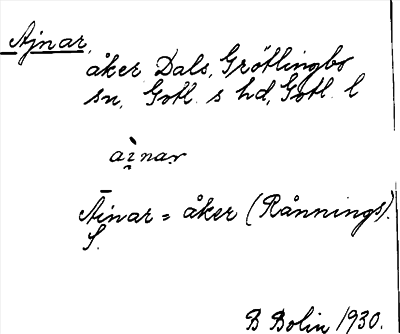 Ajnar,
åker Dals, Grötlingbo
sn, Gotl. s hd, Gotl. l
aì̯nar
Āinar = åker (Rånnings).
S.
B Bolin 1930.